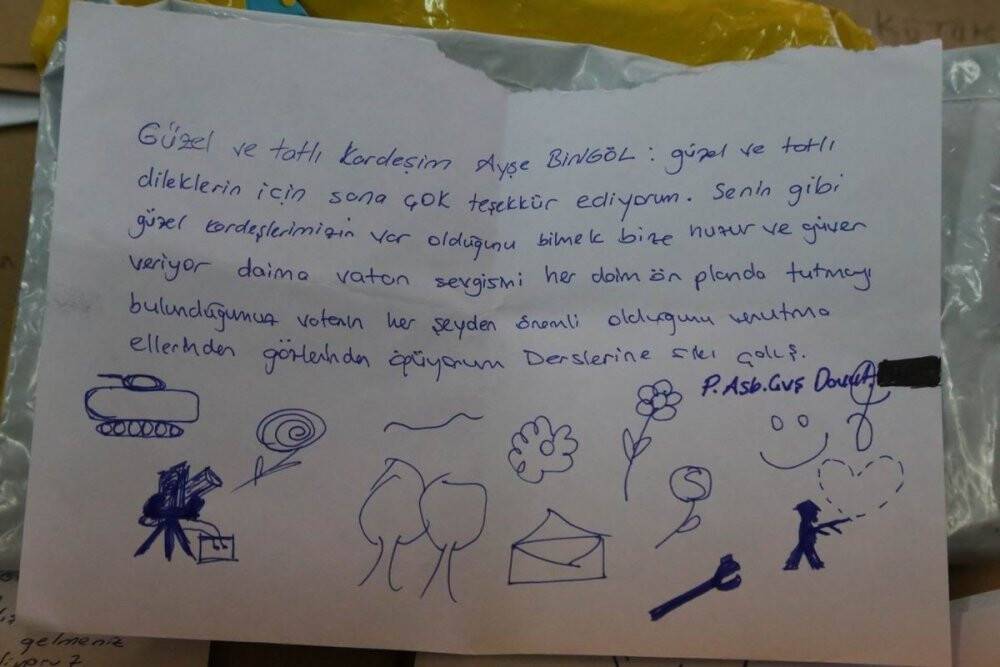 Güzel ve tatlı kardeşim Ayşe BİNGÖL : güzel ve tatlı
dileklerin için sana çok teşekkür ediyorum. Senin gibi
güzel kardeşlerimizin var olduğunu bilmek bize huzur ve güven
veriyor daima vatan sevgisini her daim ön planda tutmayı
bulunduğumuz vatanın her şeyden önemli olduğunu unutma
ellerinden gözlerinden öpüyorum Derslerine sıkı çalış.
P. Asb. Çvş
S
gelmeniz